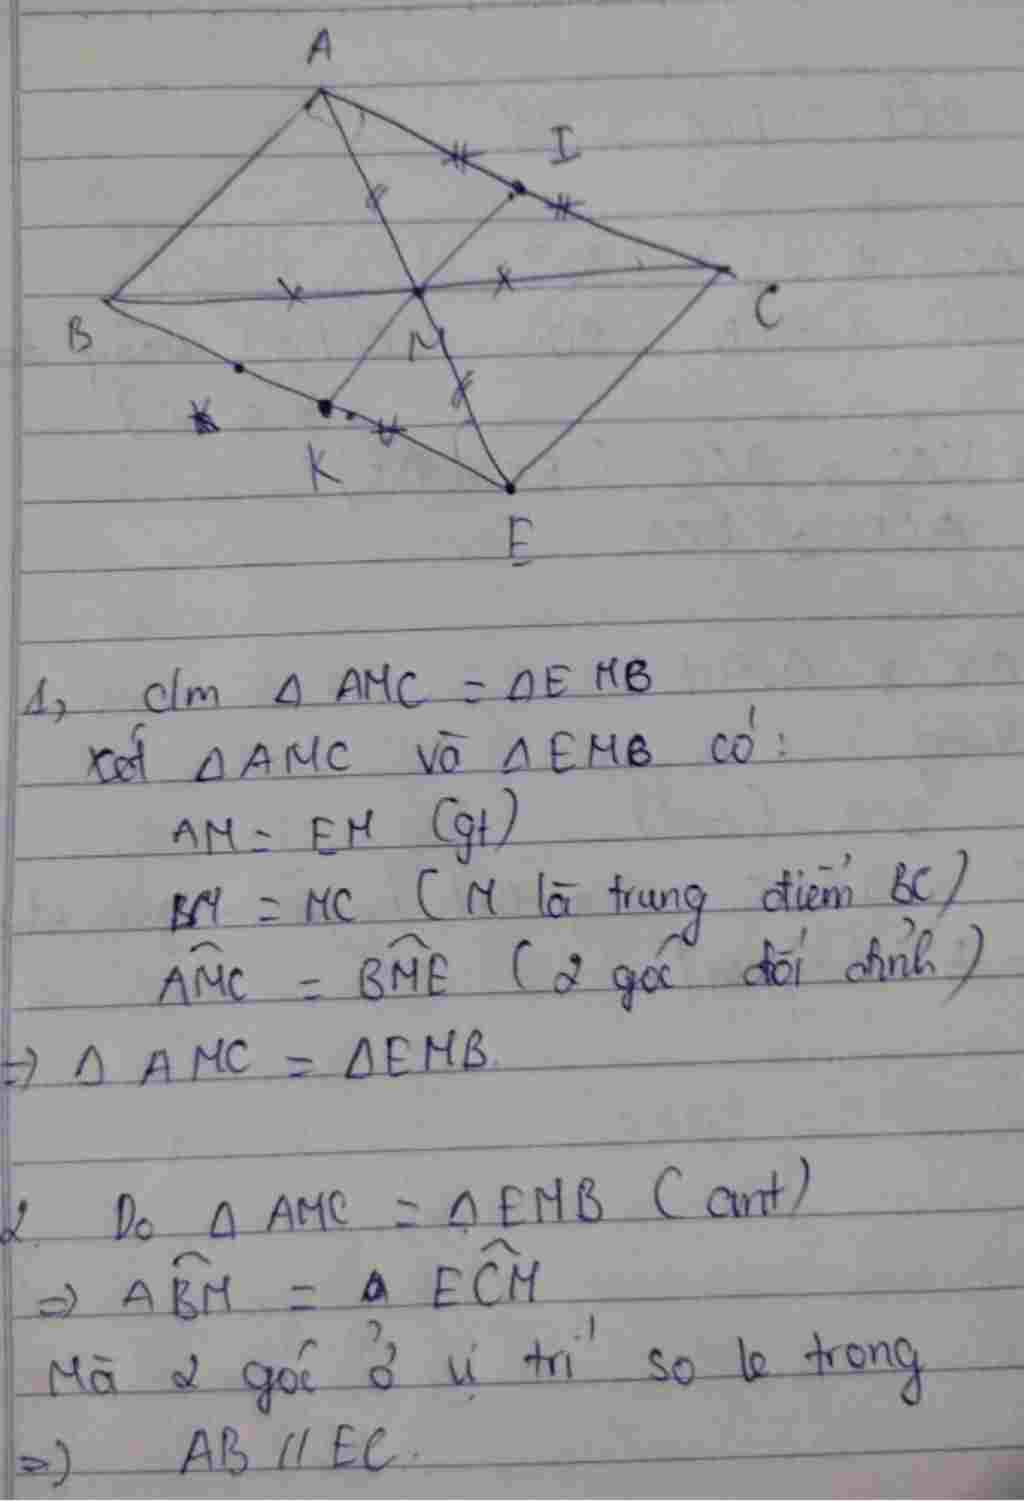 A
I
B
M
C
K
E
1, c/m Δ AMC = ΔEMB
Xét ΔAMC và ΔEMB có:
AM = EM (gt)
BM = MC (M là trung điểm BC)
\widehat{AMC} = \widehat{BME} (2 góc đối đỉnh)
=> Δ AMC = ΔEMB.
2. Do Δ AMC = ΔEMB (cmt)
=> \widehat{ABM} = \widehat{ECM}
Mà 2 góc ở vị trí so le trong
=> AB // EC.